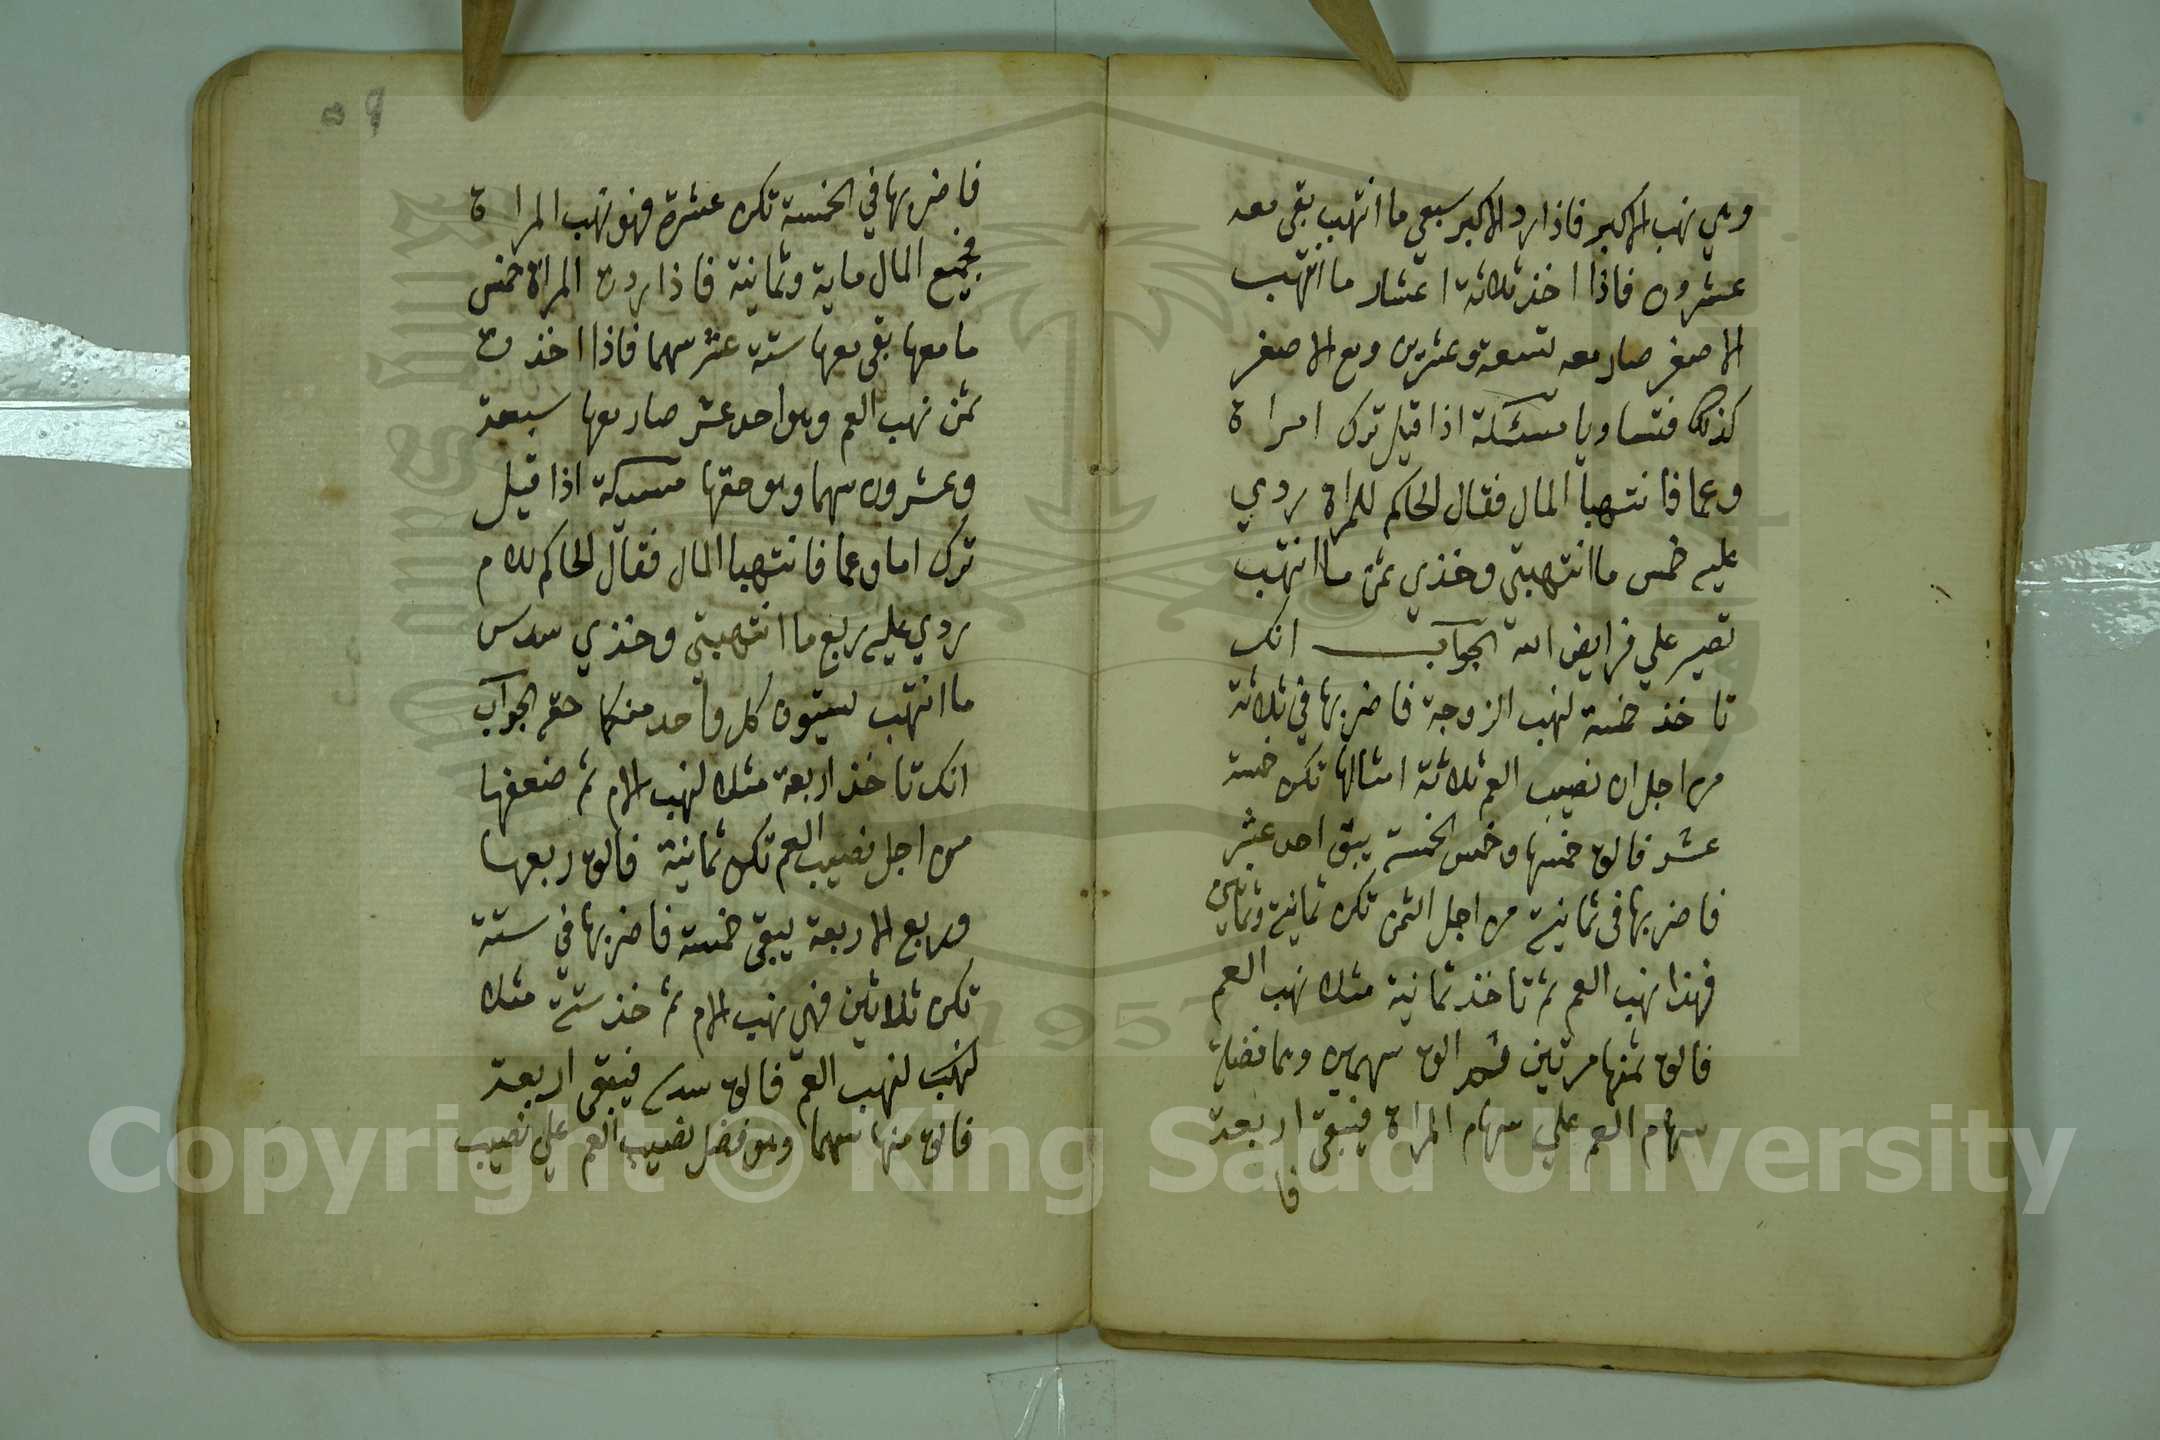 وهي نهب الاكبر فاذا رد الاكبر سبعي ما انتهب بقي معه
عشرون فاذا اخذ ثلاثة اعشار ما انتهب
الاصغر صار معه تسعة وعشرين ومع الاصغر
كذلك فتساويا مسئلة اذا قيل ترك امراة
وعما فانتهبا المال فقال الحاكم للمراة ردي
عليه خمس ما انتهبتي وخذي ثمن ما انتهب
تصير علي فرايض الله الجواب انك
تاخذ خمسة لنهب الزوجة فاضربها في ثلاثة
من اجل ان نصيب العم ثلاثة امثالها تكن خمسة
عشر فالق خمسها وخمس الخمسة يبقى احد عشر
فاضربها في ثمانية من اجل الثمن تكن ثمانية وثمانين
فهذا نهب العم ثم تاخذ ثمانية مثلا نهب العم
فالق ثمنها مرتين ثم الق سهمين وهما فضلة
سهام العم علي سهام المراة فيبقى اربعة
فا
٥٩
فاضربها في الخمسة تكن عشرة فهو نهب المراة
فجميع المال ماية وثمانية فاذا ردت المراة خمس
ما معها بقي معها ستة عشر سهما فاذا اخذت
ثمن نهب العم وهو احد عشر صار معها سبعة
وعشرون سهما وهو حقها مسئلة اذا قيل
ترك اما وعما فانتهبا المال فقال الحاكم للام
ردي عليه ربع ما انتهبتي وخذي سدس
ما انتهب يستون كل واحد منكما حقه الجواب
انك تاخذ اربعة مثلا لنهب الام ثم ضعفها
من اجل نصيب العم تكن ثمانية فالق ربعها
وربع الاربعة يبقى خمسة فاضربها في ستة
تكن ثلاثين فهي نهب الام ثم خذ ستة مثلا
لنهب لنهب العم فالق سدسه فيبقى اربعة
فالق منها سهما وهو فضل نصيب العم علي نصيب
Copyright © King Saud University
1957